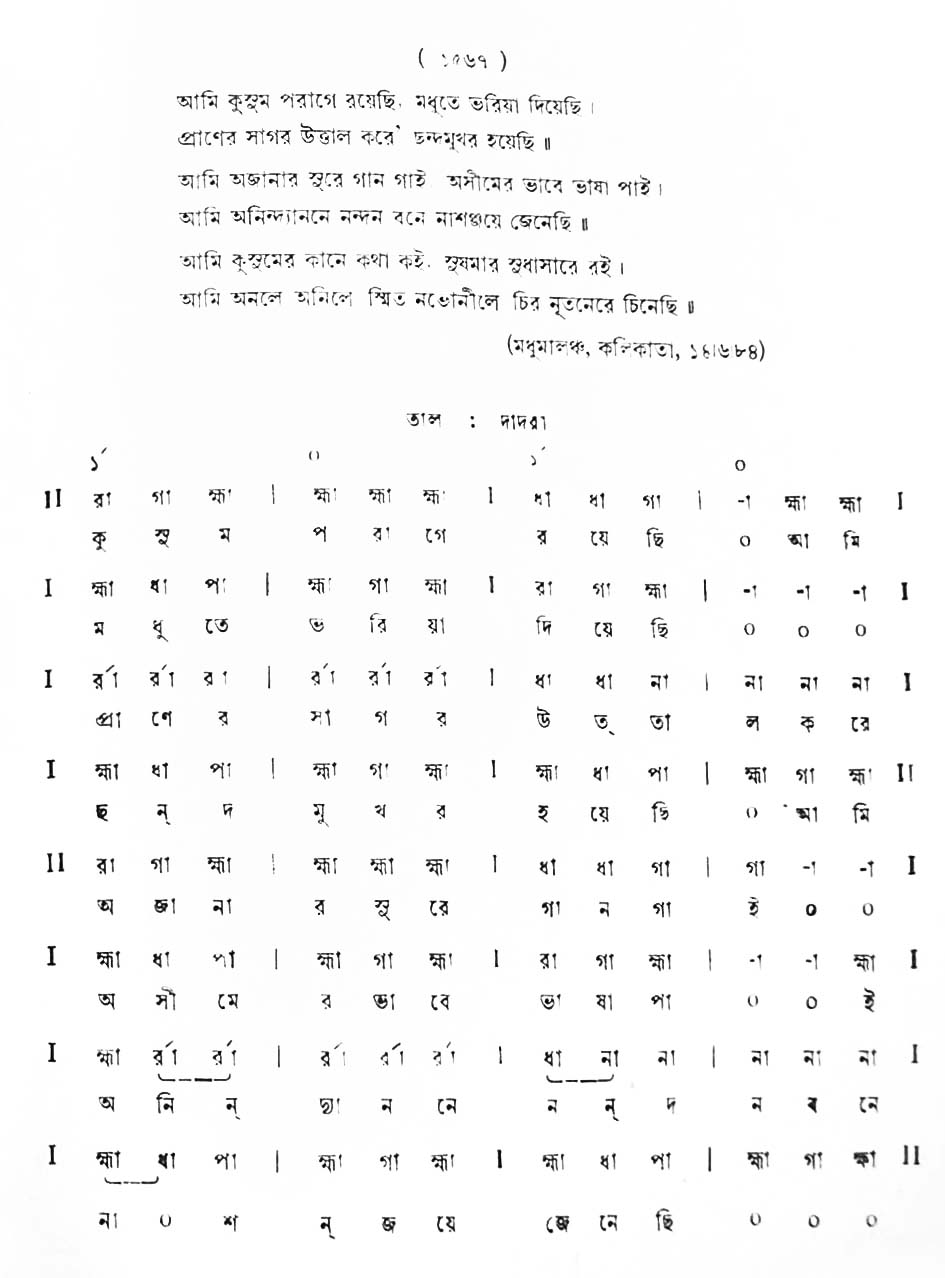 ( ১৫৬৭ )
আমি কুসুম পরাগে রয়েছি, মধুতে ভরিয়া দিয়েছি।
প্রাণের সাগর উত্তাল করে' ছন্দমুখর হয়েছি॥
আমি অজানার সুরে গান গাই অসীমের ভাবে ভাষা পাই।
আমি অনিন্দ্যাননে নন্দন বনে নাশঞ্জয়ে জেনেছি॥
আমি কুসুমের কানে কথা কই, সুষমার সুধাসারে রই।
আমি অনলে অনিলে স্মিত নভোনীলে চির নূতনেরে চিনেছি॥
(মধুমালঞ্চ, কলিকাতা, ১৪।৬৮৪)
তাল : দাদরা
১´ ০ ১´ ০
II রা গা হ্মা | হ্মা হ্মা হ্মা I ধা ধা গা | -া হ্মা হ্মা I
কু সু ম প রা গে র য়ে ছি ০ আ মি
I হ্মা ধা পা | হ্মা গা হ্মা I রা গা হ্মা | -া -া -া I
ম ধু তে ভ রি য়া দি য়ে ছি ০ ০ ০
I র্রা র্রা রা | র্রা র্রা র্রা I ধা ধা না | না না না I
প্রা ণে র সা গ র উ ত্ তা ল ক রে
I হ্মা ধা পা | হ্মা গা হ্মা I হ্মা ধা পা | হ্মা গা হ্মা II
ছ ন্ দ মু খ র হ য়ে ছি ০ আ মি
II রা গা হ্মা | হ্মা হ্মা হ্মা I ধা ধা গা | গা -া -া I
অ জা না র সু রে গা ন গা ই ০ ০
I হ্মা ধা পা | হ্মা গা হ্মা I রা গা হ্মা | -া -া হ্মা I
অ সী মে র ভা বে ভা ষা পা ০ ০ ই
I হ্মা র্রা র্রা | র্রা র্রা র্রা I ধা না না | না না না I
অ নি ন্ দ্যা ন নে ন ন্ দ ন ব নে
I হ্মা ধা পা | হ্মা গা হ্মা I হ্মা ধা পা | হ্মা গা ক্ষা II
না ০ শ ন্ জ য়ে জে নে ছি ০ ০ ০